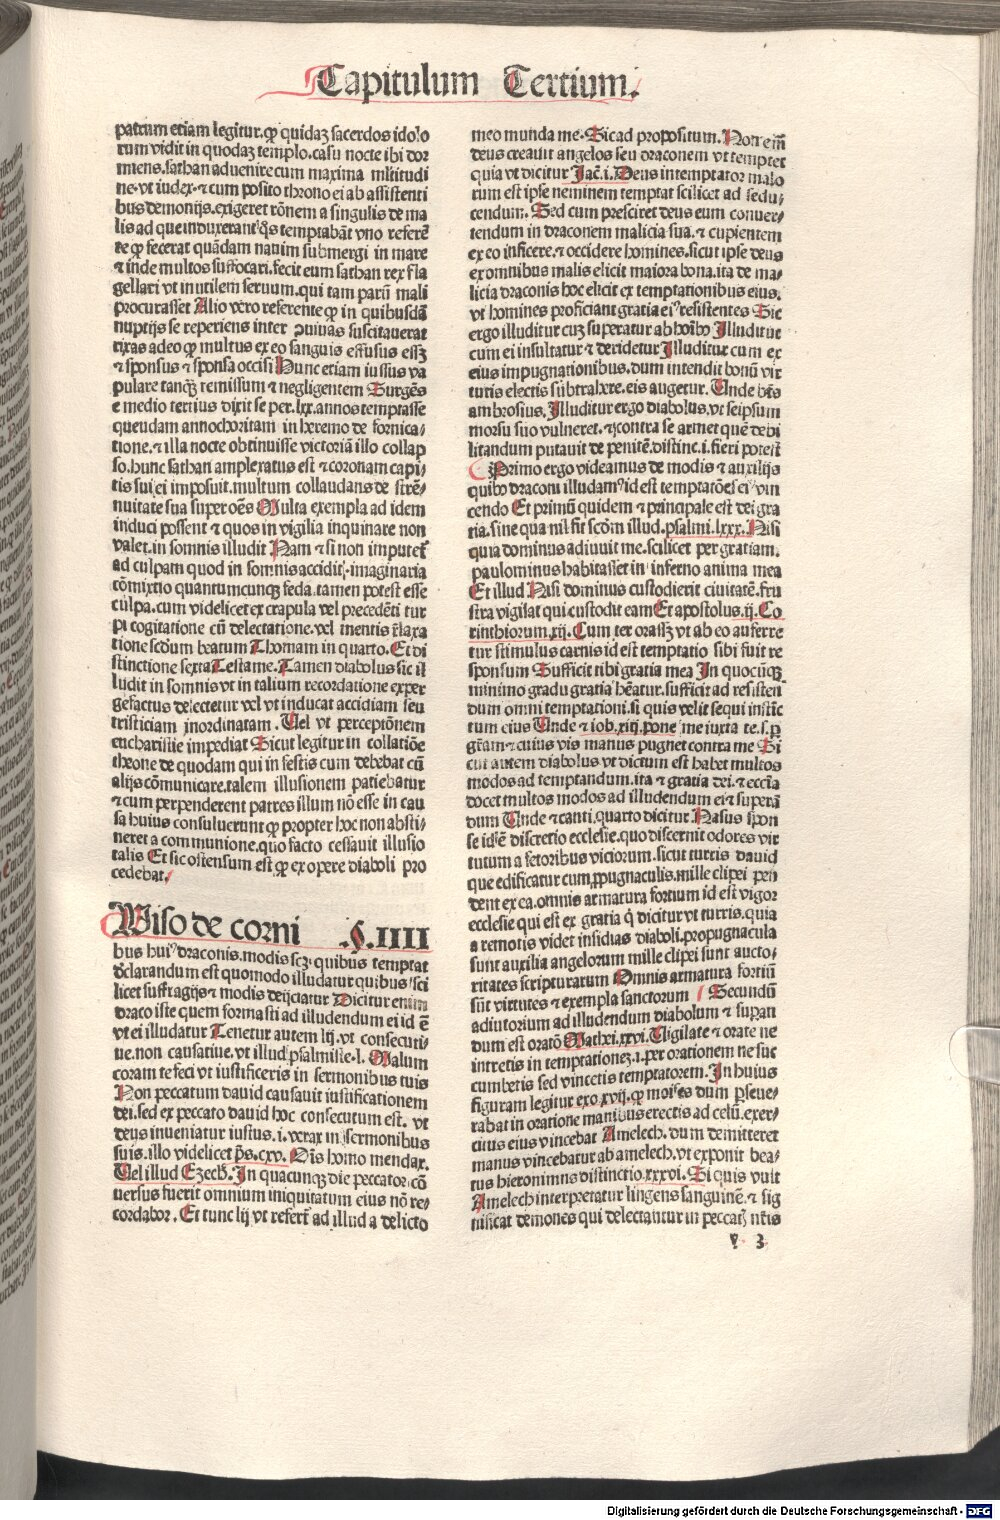 Capitulum Tertium.
patrum etiam legitur. ꝙ quidaꝫ sacerdos idolo
rum vidit in quodaꝫ templo. casu nocte ibi dor
miens. sathan aduenire cum maxima mltitudi
ne. vt iudex. ⁊ cum posito throno ei ab assistenti
bus demonijs. exigeret rōnem a singulis de ma
lis ad que induxerant qͥs temptabāt vno referē
te ꝙ fecerat quādam nauim submergi in mare
⁊ inde multos suffocari. fecit eum sathan rex fla
gellari vt inutilem seruum. qui tam parū mali
procurasset Alio vero referente ꝙ in quibusdā
nuptijs se reperiens inter ꝯuiuas suscitauerat
rixas adeo ꝙ multus ex eo sanguis effusus essꝫ
⁊ sponsus ⁊ sponsa occisi Hunc etiam iussus va
pulare tanqꝫ remissum ⁊ negligentem Surgēs
e medio tertius dixit se per. lxx. annos temptasse
quendam anachoritam in heremo de fornica-
tione. ⁊ illa nocte obtinuisse victoriā illo collap
so. hunc sathan amplexatus est ⁊ coronam capi-
tis sui ei imposuit. multum collaudans de strē-
nuitate sua super oēs Multa exempla ad idem
induci possent ⁊ quos in vigilia inquinare non
valet. in somnis illudit Nam ⁊ si non imputet̄
ad culpam quod in somnis accidit. imaginaria
cōmixtio quantumcunqꝫ feda. tamen potest esse
culpa. cum videlicet ex crapula vel precedēti tur
pi cogitatione cū delectatione. vel mentis r̄laxa
tione scdum beatum Thomam in quarto. Et di
stinctione sexta Testame. Tamen diabolus sic il
ludit in somnis vt in talium recordatione exper
gefactus delectetur vel vt inducat accidiam seu
tristiciam inordinatam. Uel vt perceptōnem
eucharistie impediat Sicut legitur in collatiōe
theone de quodam qui in festis cum debebat cū
alijs cōmunicare. talem illusionem patiebatur
⁊ cum perpenderent patres illum nō esse in cau
sa huius consuluerunt ꝙ propter hoc non absti-
neret a communione. quo facto cessauit illusio
talis Et sic ostensum est ꝙ ex opere diaboli pro
cedebat.
Uiso de corni .§.IIII
bus huiꝰ draconis. modis scꝫ. quibus temptat
dclarandum est quomodo illudatur quibus sci
licet suffragijs ⁊ modis deijciatur Dicitur enim
draco iste quem formasti ad illudendum ei id ē
vt ei illudatur Tenetur autem lij. vt consecuti-
ue. non causatiue. vt illud psalmiste. l. Malum
coram te feci vt iustificeris in sermonibus tuis
Non peccatum dauid causauit iustificationem
dei. sed ex peccato dauid hoc consecutum est. vt
deus inueniatur iustus. i. verax in sermonibus
suis. illo videlicet p̄s. cxv. Ois homo mendax.
Uel illud Ezech̄. In quacunqꝫ die peccator cō
uersus fuerit omnium iniquitatum eius nō re-
cordabor. Et tunc lij vt refert̄ ad illud a delicto
meo munda me. Sic ad propositum. Non em̄
deus creauit angelos seu draconem vt temptet
quia vt dicitur Jac̄. i. Deus intemptator malo
rum est ipse neminem temptat scilicet ad sedu-
cendum. Sed cum presciret deus eum conuer-
tendum in draconem malicia sua. ⁊ cupientem
ex eo inficere. ⁊ occidere homines. sicut ipse deus
ex omnibus malis elicit maiora bona. ita de ma-
licia draconis hoc elicit ex temptationibus eius.
vt homines proficiant gratia eiꝰ resistentes Sic
ergo illuditur cuꝫ superatur ab hoībꝰ Illuditur
cum ei insultatur ⁊ deridetur Illuditur cum ex
eius impugnationibus. dum intendit bonū vir
tutis electis subtrahere. eis augetur. Unde btūs
ambrosius. Illuditur ergo diabolus. vt seipsum
morsu suo vulneret. ⁊ ꝯtra se armet quē debi
litandum putauit de peniteē. distinc. i. fieri potest
Primo ergo videamus de modis ⁊ auxilijs
quibꝰ draconi illudamꝰ id est temptatōes eiꝰ vin
cendo Et primū quidem ⁊ principale est dei gra
ria. sine qua nil fit scdm illud. psalmi. lxxx. Nisi
quia dominus adiuuit me. scilicet per gratiam.
paulominus habitasset in inferno anima mea
Et illud Nisi dominus custodierit ciuitatē. fru
stra vigilat qui custodit eam Et apostolus. ij. Co
rinthiorum. xij. Cum ter orassꝫ vt ab eo auferre
tur stimulus carnis id est temptatio sibi fuit re
sponsum Sufficit tibi gratia mea In quocūqꝫ
minimo gradu gratia hēatur. sufficit ad resisten
dum omni temptationi. si quis velit sequi instīc
tum eius Unde ⁊ iob. xiij. pone me iuxta te. s. ꝑ
grām ⁊ cuius vis manus pugnet contra me Si
cut autem diabolus vt dictum est habet multos
modos ad temptandum. ita ⁊ gratia dei. ⁊ eccīa
docet multos modos ad illudendum ei ⁊ superā
dum Unde ⁊ canti. quarto dicitur. Nasus spon
se idē discretio ecclesie. quo discernit odores vir
tutum a fetoribus viciorum. sicut turris dauid
que edificatur cum ꝓpugnaculis. mille clipei pen
dent ex ea. omnis armatura fortium id est vigor
ecclesie qui est ex gratia q̄ dicitur vt turris. quia
a remotis videt insidias diaboli. propugnacula
sunt auxilia angelorum mille clipei sunt aucto-
ritates scripturarum Omnis armatura fortiū
sūt virtutes ⁊ exempla sanctorum Secundū
adiutorium ad illudendum diabolum ⁊ suꝑan
dum est oratō Mathei. xxvi. Uigilate ⁊ orate ne
intretis in temptationeꝫ. i. per orationem ne suc
cumbetis sed vincetis temptatorem. In huius
figuram legitur exo. xvij. ꝙ moises dum ꝑseue-
rabat in oratione manibus erectis ad celū. exer-
citus eius vincebat Amelech. dum demitteret
manus vincebatur ab amelech. vt exponit bea-
tus hieronimus distinctio. xxxvi. Si quis vult
Amelech interpretatur lingens sanguinē. ⁊ sig
nificat demones qui delectantur in peccatꝭ nr̄is
v 3
Digitalisierung gefördert durch die Deutsche Forschungsgemeinschaft - DFG